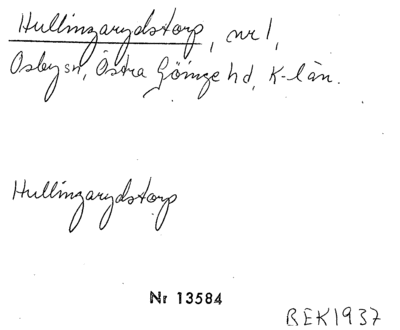 Hullingarydstorp, nr 1,
Osby sn, Östra Göinge hd, K-län.
Hullingarydstorp
Nr 13584
BEK1937